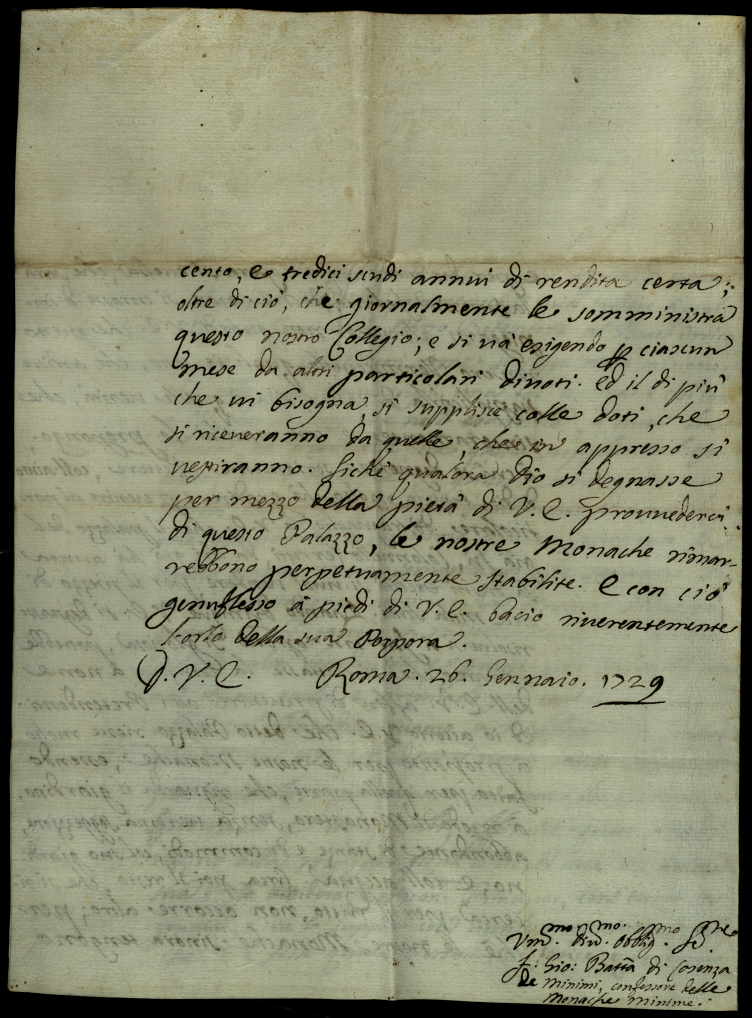 cento, e tredici scudi annui di rendita certa;
oltre di ciò, che giornalmente le somministra
questo nostro Collegio; e si và esigendo p ciascun
mese da altri particolari divoti. Ed il di più
che vi bisogna, si supplisce colle doti, che
si riceveranno da quelle, che in appresso si
vestiranno. Sichè qualora Dio si degnasse
per mezzo della pietà di V. E. provvederci
di questo Palazzo, le nostre Monache rimar-
rebbono perpetuamente stabilite. E con ciò
genuflesso à piedi di V. E. bacio riverentemente
l'orlo della sua Porpora.
D. V. E. Roma. 26. Gennaio. 1729
Vmmo. divmo. obbligmo
f. Gio: Batta di Cosenza
de Minimi, confessore delle
Monache Minime.